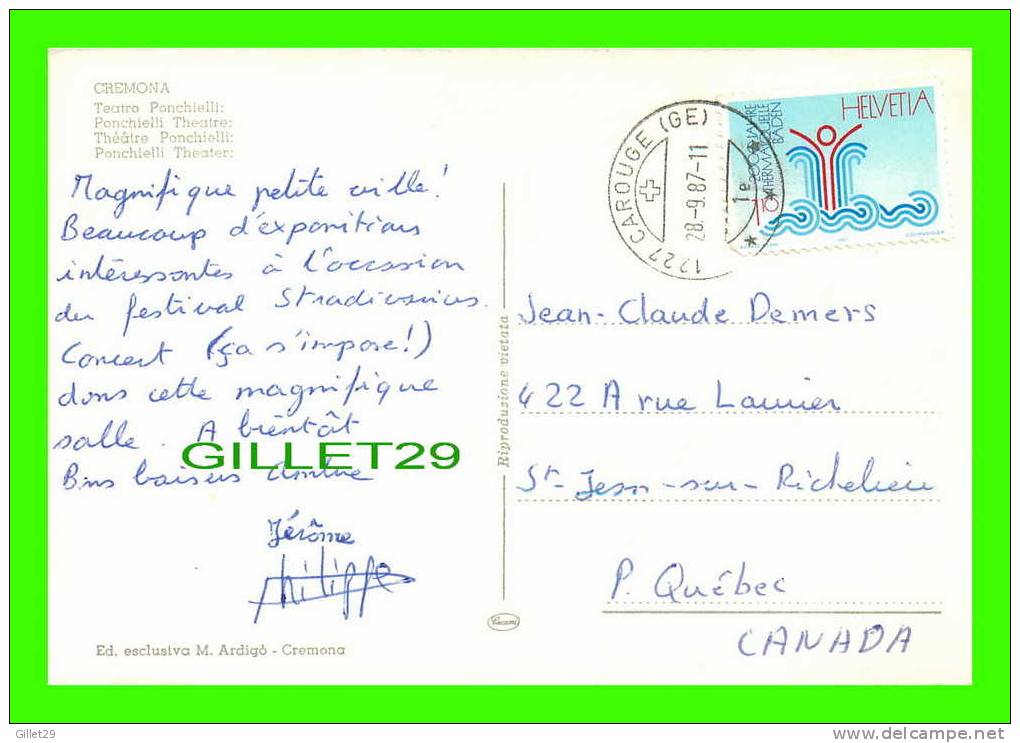 CREMONA
Teatro Ponchielli:
Ponchielli Theatre:
Théâtre Ponchielli:
Ponchielli Theater:
Magnifique petite ville!
Beaucoup d'expositions
intéressantes à l'occasion
du festival Stradivarius.
Concert (ça s'impose!)
dans cette magnifique
salle. A bientôt
Bons baisers
Jérôme
Philippe
Ed. esclusiva M. Ardigò - Cremona
Riproduzione vietata
1227 CAROUGE (GE)
28.-9.87-11
1e
HELVETIA
2000 JAHRE
THERMALQUELLE
BADEN
110
Jean-Claude Demers
422 A rue Laurier
St-Jean-sur-Richelieu
P. Québec
CANADA
GILLET29
Gillet29
www.delcampe.net